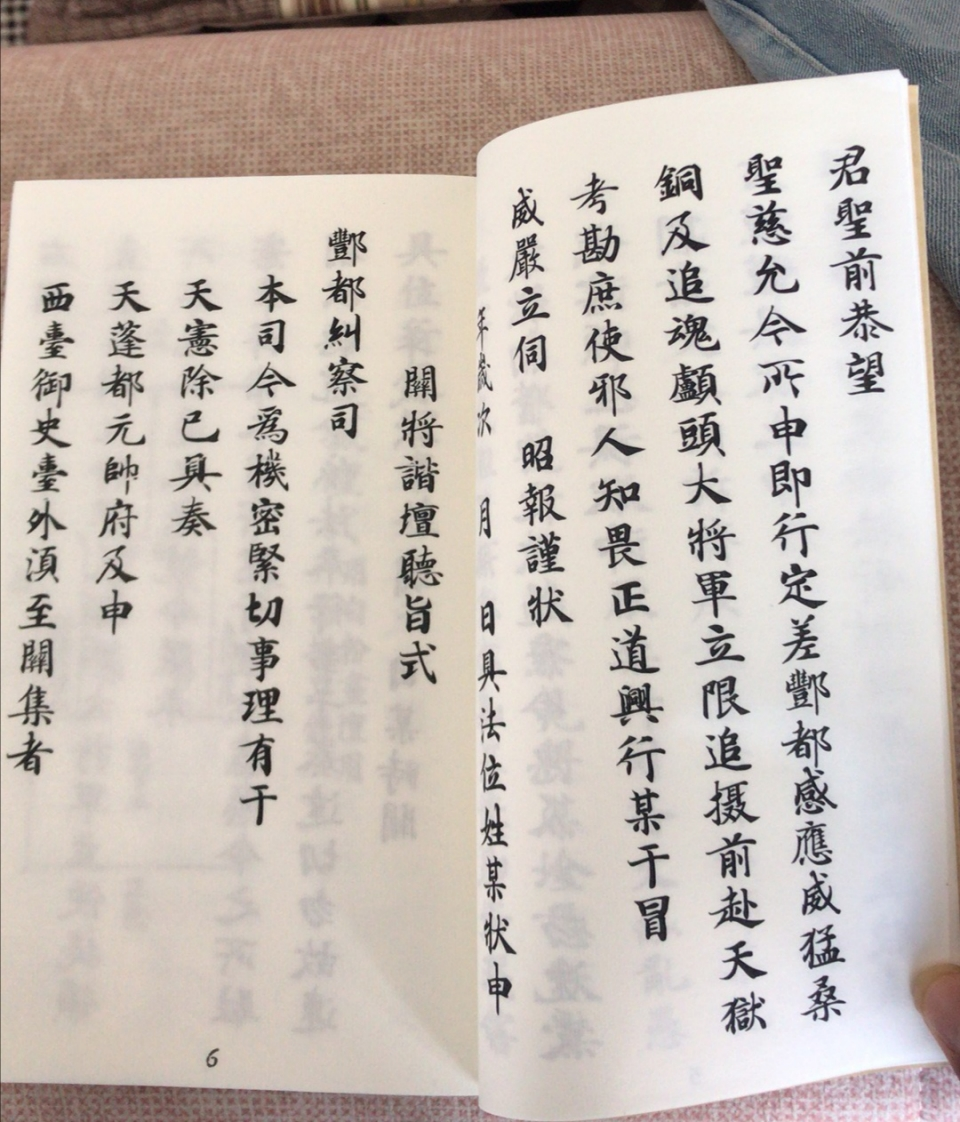 君聖前恭望
聖慈允今所申即行定差酆都感應威猛桑
銅及追魂顱頭大將軍立限追摄前赴天獄
考勘庶使邪人知畏正道興行某干冒
威嚴立伺 昭報謹狀
年歲次 月 日具法位姓某狀申
關將諧壇聽旨式
酆都糾察司
本司今爲機密緊切事理有干
天憲除已具奏
天蓬都元帥府及申
西臺御史臺外湏至關集者
6